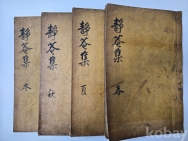 靜菴集 春
靜菴集 夏
靜菴集 秋
靜菴集 冬
kobay